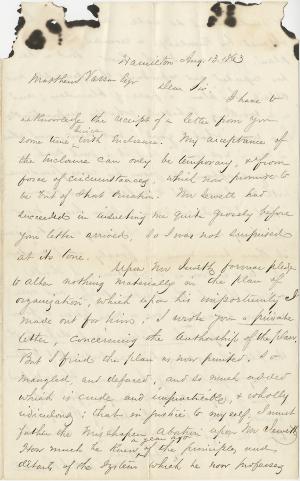 Hamilton Aug. 13. 1863
Matthew Vassar Esqr
Dear Sir.
I have to
acknowledge the receipt of a letter from you
some time since with Inclosure. My acceptance of
the Inclosure can only be temporary, & from
force of circumstances, which now promise to
be out of that
Mr Jewett had
succeeded in insulting me quite grossly before
your letter arrived, so I was not surprised
at its tone.
Upon Mr Jewett's former pledge
to alter nothing materially in the plan of
organization, which upon his importunity I
made out for him, I wrote you a private
letter, concerning the Authorship of the plan.
But I find the plan as now printed, so
mangled, and defaced, and so much added
which is crude and impracticable, & wholly
ridiculous; that in justice to myself, I must
father the misshapen abortion upon Mr Jewett.
How much he knew a year ago of the principles, and
details of the System which he now professes